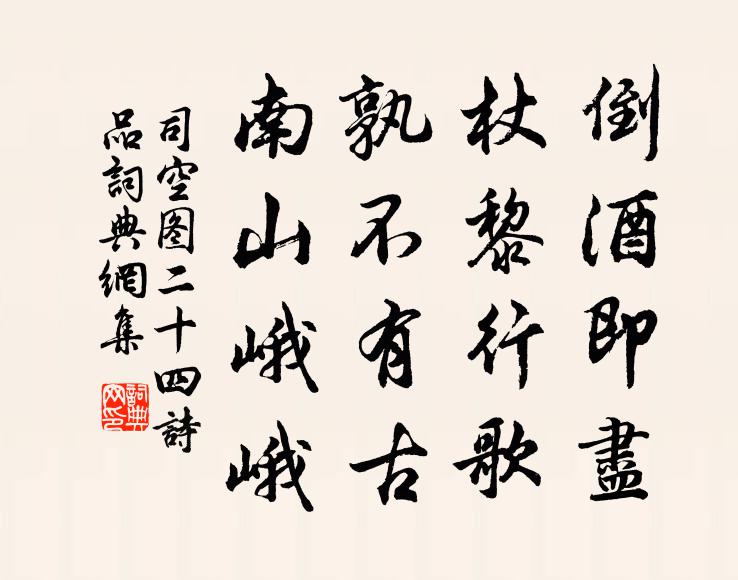 倒酒即盡
杖黎行歌
孰不有古
南山峨峨
司空图二十四詩
品詞典網集
詞典网印